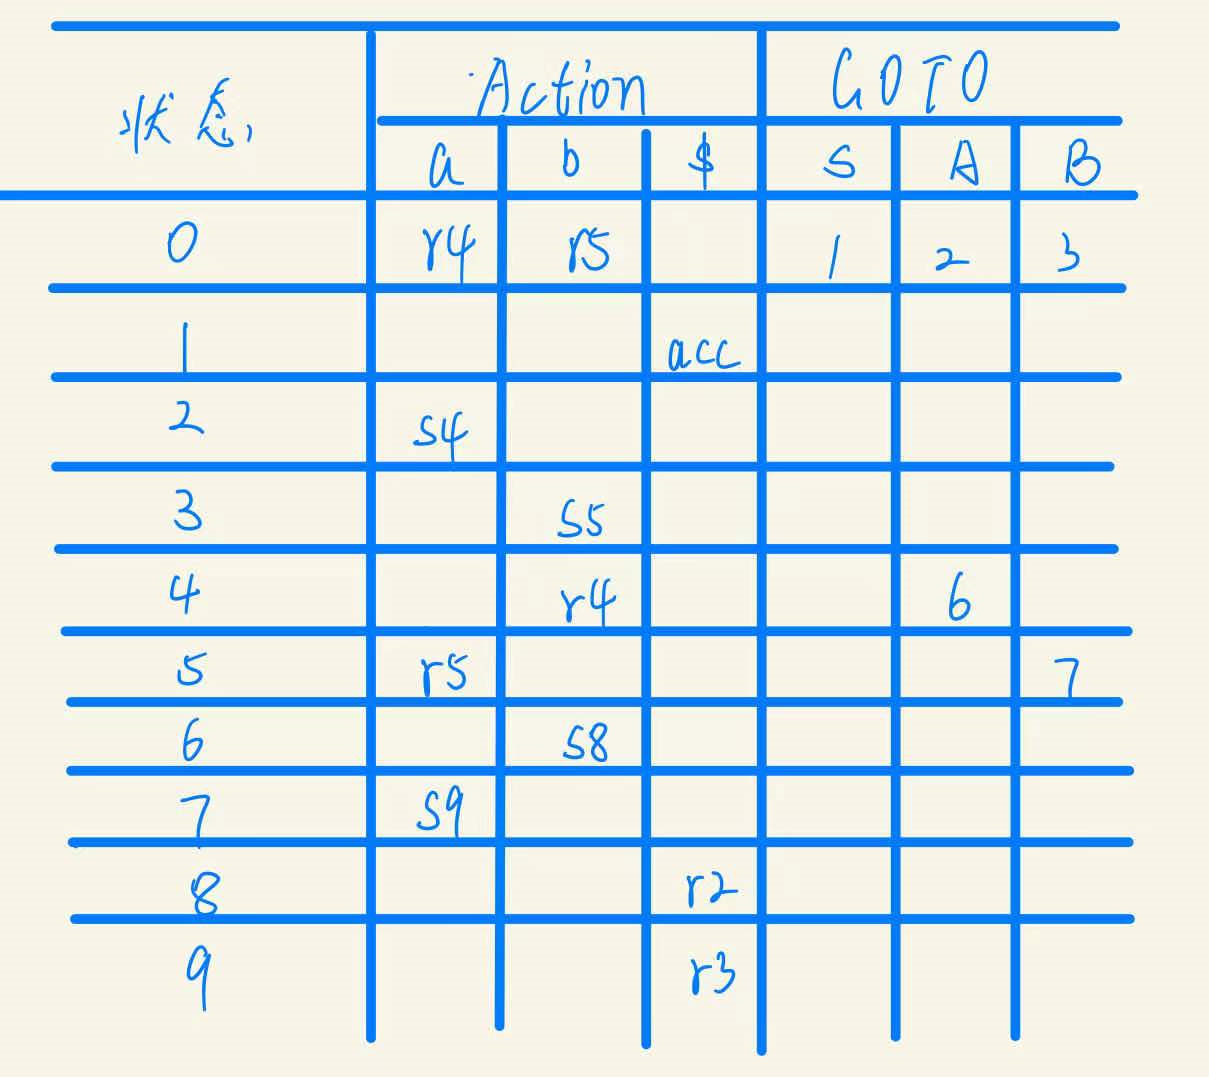 状态 Action GOTO
a b $ S A B
0 r4 r5 1 2 3
1 acc
2 s4
3 s5
4 r4 6
5 r5 7
6 s8
7 s9
8 r2
9 r3